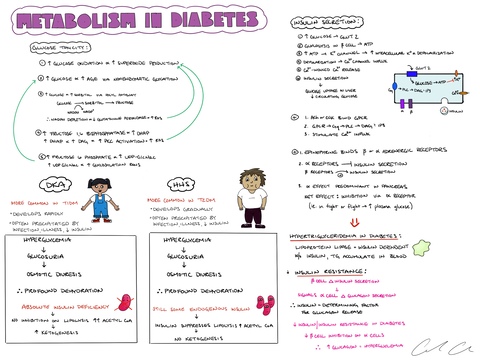 METABOLISM IN DIABETES
GLUCOSE TOXICITY:
① ↑ GLUCOSE OXIDATION = ↑ SUPEROXIDE PRODUCTION
② ↑ GLUCOSE = ↑ AGE VIA NONENZYMATIC GLYCATION
③ ↑ GLUCOSE = ↑ SORBITOL VIA
GLUCOSE → SORBITOL → FRUCTOSE
④ ↑ FRUCTOSE 1,6 BISPHOSPHATE = ↑ DHAP
↑ DHAP = ↑ DAG = ↑ PKC ACTIVATION = ↑ ROS
⑤ ↑ FRUCTOSE 6 PHOSPHATE = ↑ UDP-GLCNAC
DKA
MORE COMMON IN T1DM
- DEVELOPS RAPIDLY
- OFTEN PRECIPITATED BY
INFECTION, ILLNESS, ↓ INSULIN
HYPERGLYCEMIA
↓
GLUCOSURIA
↓
OSMOTIC DIURESIS
∴ PROFOUND DEHYDRATION
ABSOLUTE INSULIN DEFICIENCY
↓
NO INHIBITION ON LIPOLYSIS ↑↑ ACETYL COA
↓
↑ KETOGENESIS
HHS
MORE COMMON IN T2DM
- DEVELOPS GRADUALLY
- OFTEN PRECIPITATED BY
INFECTION, ILLNESS, ↓ INSULIN
HYPERGLYCEMIA
↓
GLUCOSURIA
↓
OSMOTIC DIURESIS
∴ PROFOUND DEHYDRATION
STILL SOME ENDOGENOUS INSULIN
↓
INSULIN SUPPRESSES LIPOLYSIS ↑ ACETYL COA
↓
NO KETOGENESIS
INSULIN SECRETION:
① ↑ GLUCOSE → GLUT 2
② GLYCOLYSIS IN β CELL → ATP
③ ↑ ATP → K⁺ CHANNEL → ↑ INTRACELLULAR K⁺ = DEPOLARIZATION
④ DEPOLARIZATION = Ca²⁺ CHANNEL
⑤ Ca²⁺-INDUCED Ca²⁺ RELEASE
⑥ INSULIN SECRETION
↓
GLUCOSE UPTAKE IN LIVER
↓ CIRCULATING GLUCOSE
GLUT 2
GLUCOSE → ATP
K⁺
Ca²⁺
1. ACh OR CCK BIND GPCR
2. GPCR → Gq → PLC → DAG, IP3
3. STIMULATE Ca²⁺ INFLUX
1. EPINEPHRINE BINDS β OR α ADRENERGIC RECEPTORS
2. α RECEPTORS → INSULIN SECRETION
β RECEPTORS → INSULIN SECRETION
3. α EFFECT PREDOMINANT IN PANCREAS
NET EFFECT: INHIBITION VIA α RECEPTOR
(i.e. IN FIGHT OR FLIGHT → ↑ PLASMA GLUCOSE)
HYPERTRIGLYCERIDEMIA IN DIABETES:
LIPOPROTEIN LIPASE = INSULIN DEPENDENT
W/O INSULIN, TG ACCUMULATE IN BLOOD
↓ INSULIN RESISTANCE:
β CELL Δ INSULIN SECRETION
↓
SIGNALS α CELL Δ GLUCAGON SECRETION
∴ INSULIN = DETERMINING FACTOR
FOR GLUCAGON RELEASE
↓ INSULIN/INSULIN RESISTANCE IN DIABETES
↓ β CELL INHIBITION IN α CELLS
∴ ↑ GLUCAGON = HYPERGLYCEMIA